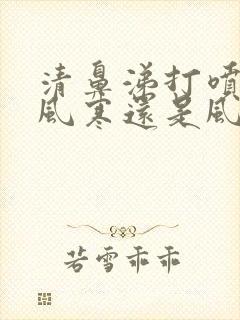 清鼻涕打噴
風寒還是風
若雪乖乖